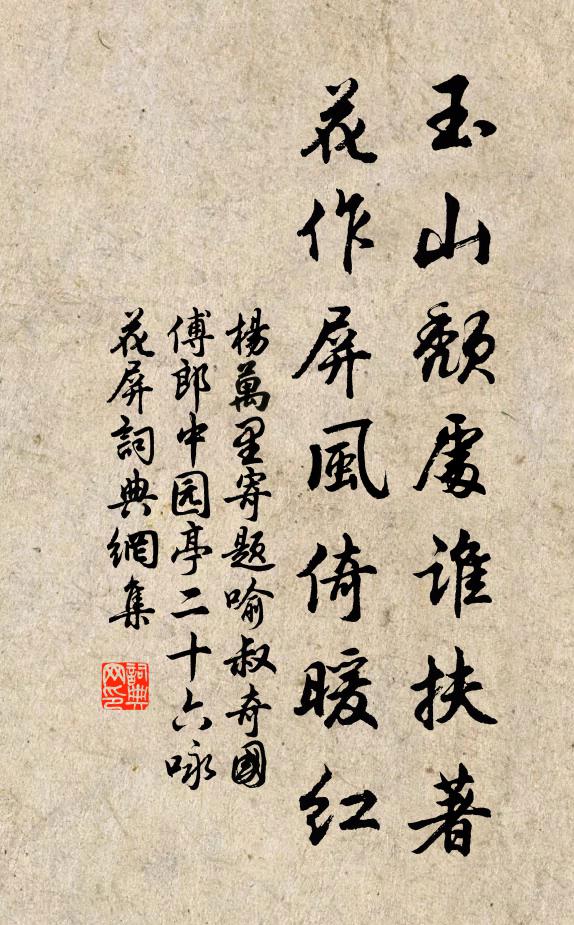 玉山颓處谁扶著
花作屏風倚暖红
楊萬里寄題喻叔奇國
傅郎中园亭二十六咏
花屏詞典網集
詞典网印